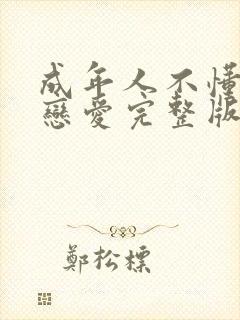 成年人不懂
戀愛完整版
鄭松標